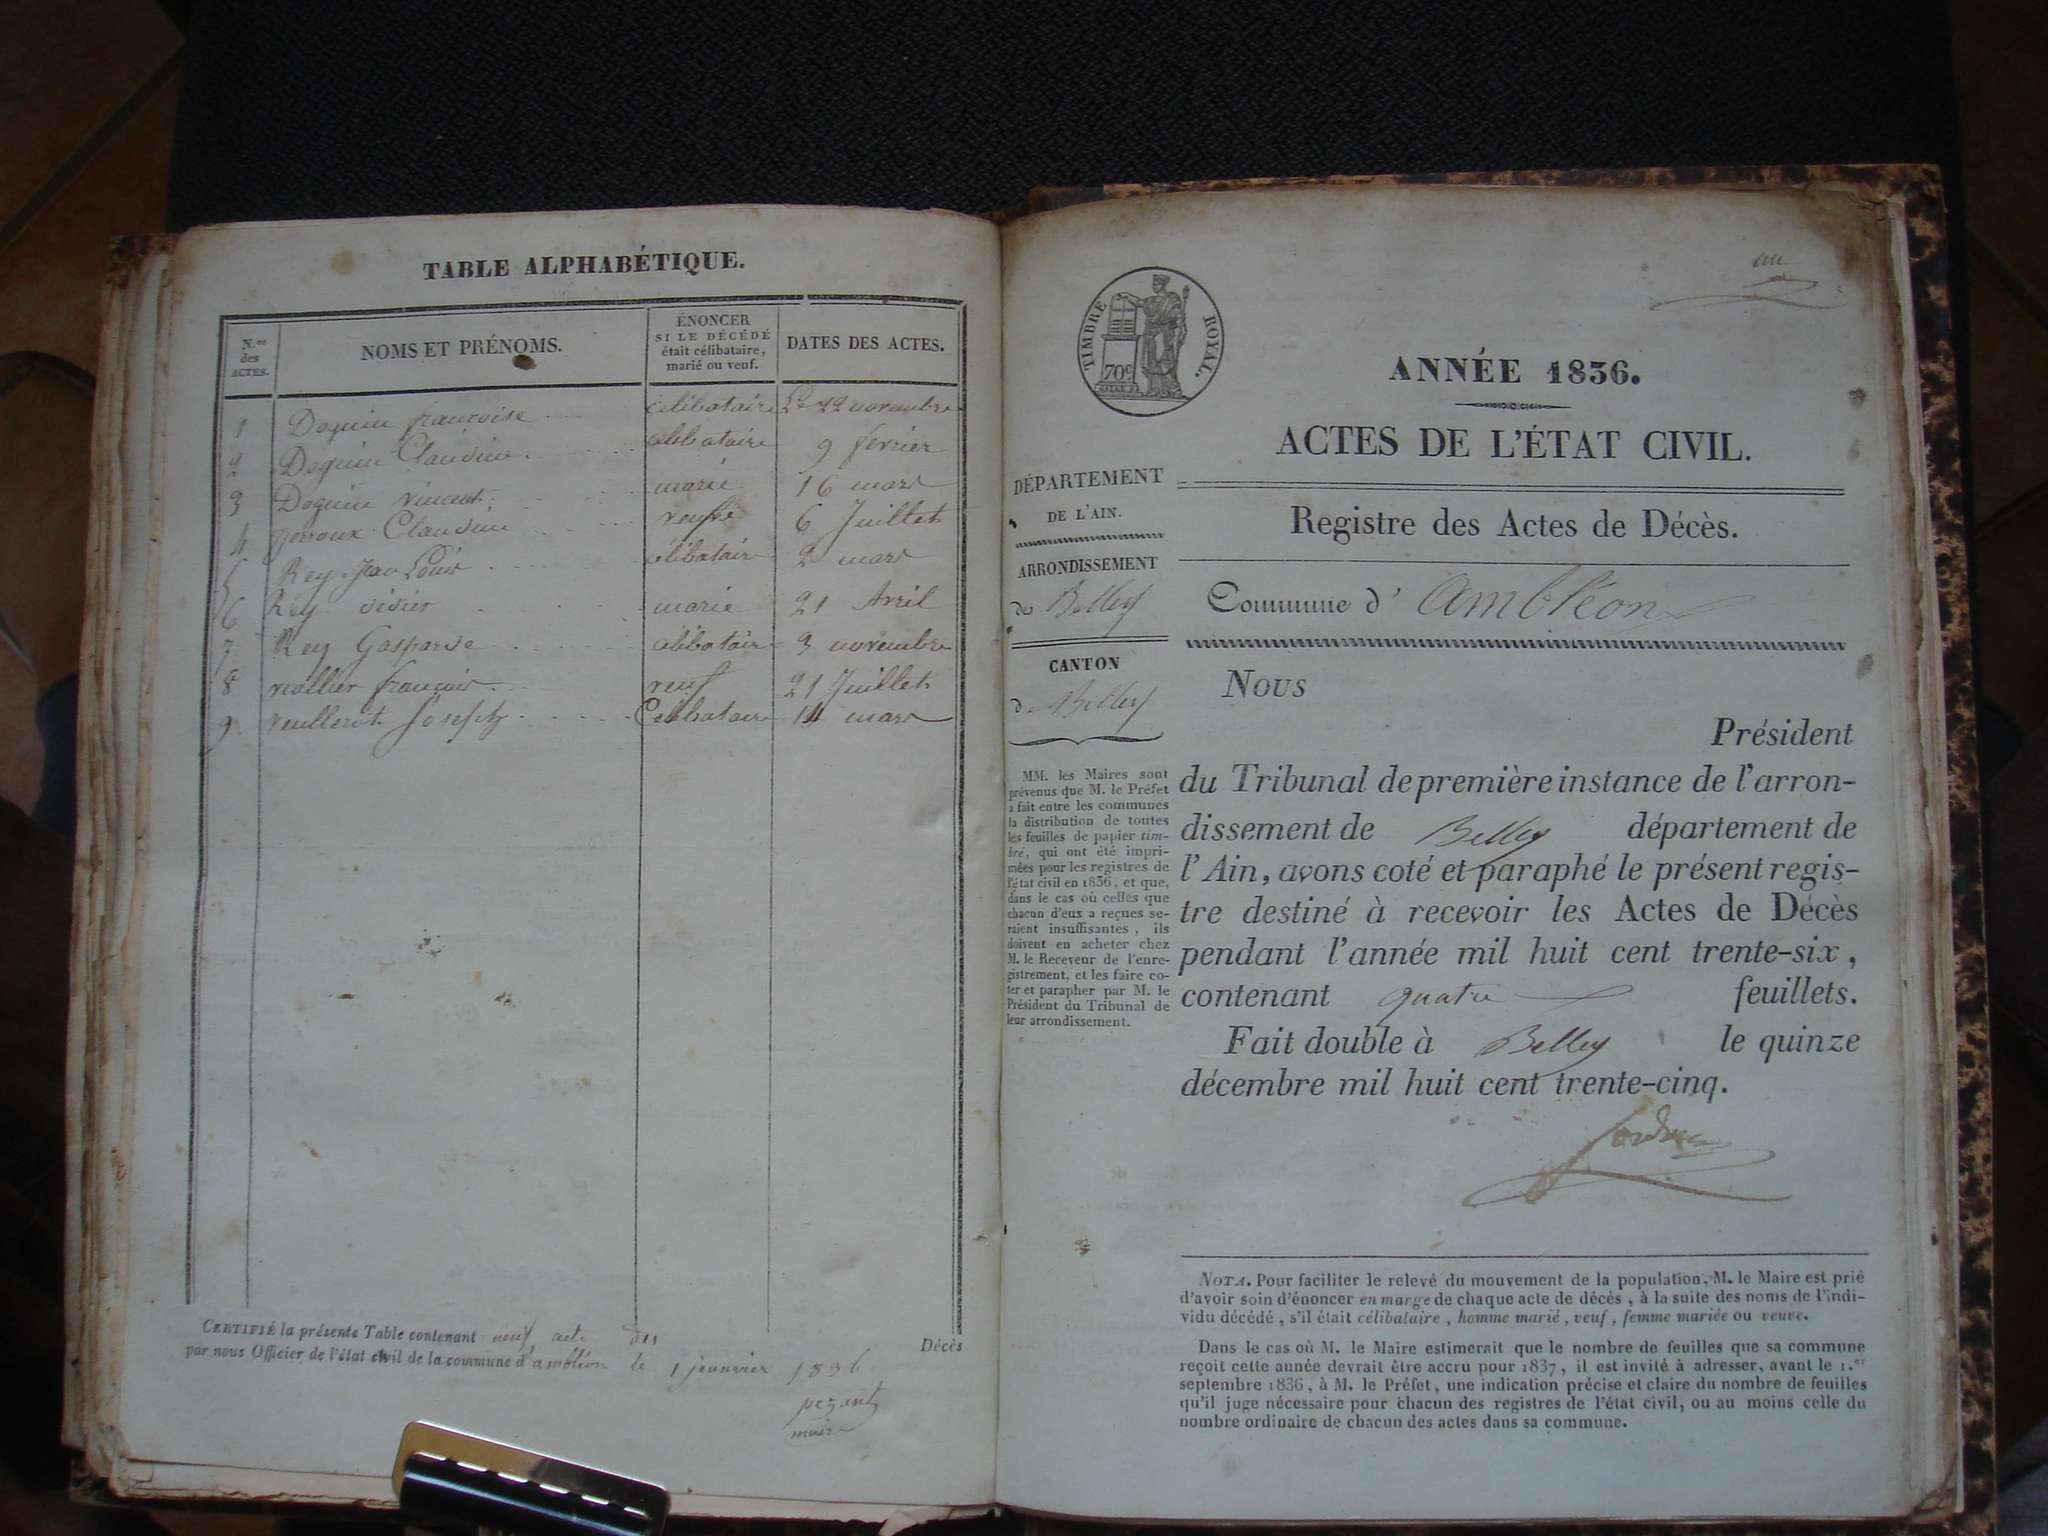 TABLE ALPHABÉTIQUE.
N.os des ACTES.
NOMS ET PRÉNOMS.
ÉNONCER SI LE DÉCÉDÉ était célibataire, marié ou veuf.
DATES DES ACTES.
1 Doguin françoise célibataire Le 22 novembre
2 Doguin Claudine célibataire 9 fevrier
3 Doguin vincent marié 16 mars
4 perroux Claudine veufve 6 Juillet
5 Rey Jean Louis célibataire 2 mars
6 Rey didier marié 21 Avril
7 Rey Gasparde célibataire 3 novembre
8 viallier françois veuf 21 Juillet
9 veullerot Joseph Célibataire 14 mars
CERTIFIÉ la présente Table contenant neuf acte des Décès
par nous Officier de l'état civil de la commune d'ambléon le 1 jeanvier 1836
pezant
maire
un
TIMBRE ROYAL.
70c
ANNÉE 1836.
ACTES DE L'ÉTAT CIVIL.
DÉPARTEMENT
DE L'AIN.
ARRONDISSEMENT
de Belley
CANTON
de Belley
MM. les Maires sont
prévenus que M. le Préfet
a fait entre les communes
la distribution de toutes
les feuilles de papier tim-
bré, qui ont été impri-
mées pour les registres de
l'état civil en 1836, et que,
dans le cas où celles que
chacun d'eux a reçues se-
raient insuffisantes, ils
doivent en acheter chez
M. le Receveur de l'enre-
gistrement, et les faire co-
ter et parapher par M. le
Président du Tribunal de
leur arrondissement.
Registre des Actes de Décès.
Commune d' Ambléon
NOUS
Président
du Tribunal de première instance de l'arron-
dissement de Belley département de
l'Ain, avons coté et paraphé le présent regis-
tre destiné à recevoir les Actes de Décès
pendant l'année mil huit cent trente-six,
contenant quatre feuillets.
Fait double à Belley le quinze
décembre mil huit cent trente-cinq.
NOTA. Pour faciliter le relevé du mouvement de la population, M. le Maire est prié
d'avoir soin d'énoncer en marge de chaque acte de décès, à la suite des noms de l'indi-
vidu décédé, s'il était célibataire, homme marié, veuf, femme mariée ou veuve.
Dans le cas où M. le Maire estimerait que le nombre de feuilles que sa commune
reçoit cette année devrait être accru pour 1837, il est invité à adresser, avant le 1.er
septembre 1836, à M. le Préfet, une indication précise et claire du nombre de feuilles
qu'il juge nécessaire pour chacun des registres de l'état civil, ou au moins celle du
nombre ordinaire de chacun des actes dans sa commune.